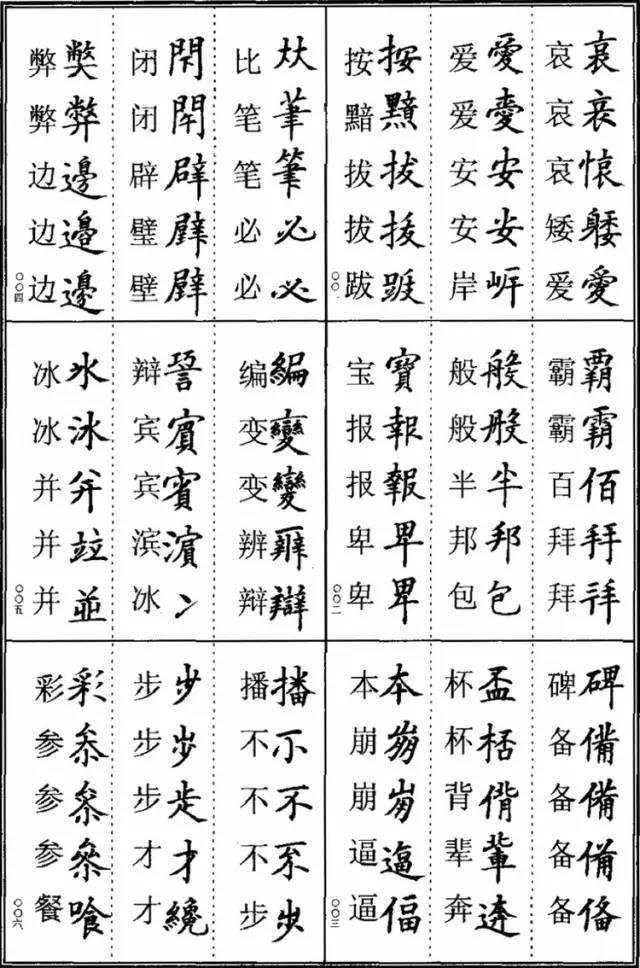 哀 哀
哀 哀
哀 懷
矮 躷
爱 愛
爱 愛
爱
安 安
安 安
岸 岍
按 按
黯 黯
拔 拔
拔 拔
跋
〇〇一
霸 覇
霸 霸
百 佰
拜 拜
拜
般 般
般 般
半 半
邦 邦
包 包
宝 寶
报 報
报 報
卑 卑
卑 卑
〇〇二
碑 碑
备 備
备 備
备 備
备
杯 盃
杯
背 偝
辈 輩
奔
本 本
崩
崩
逼 逼
逼 偪
〇〇三
比
笔 茟
笔 筆
必 必
必 必
闭 閇
闭 閉
辟 辟
璧
壁
弊
弊 弊
边 邊
边 邊
边 邊
〇〇四
编 編
变 變
变 變
辨
辩 辯
辩
宾 賓
宾 賓
滨 濵
冰 冫
冰 氷
冰 冰
并 并
并 竝
并 並
〇〇五
播 播
不
不 不
不
步 步
步 步
步 步
步
才 才
才 纔
彩 彩
参 叅
参 叅
参
餐 飡
〇〇六